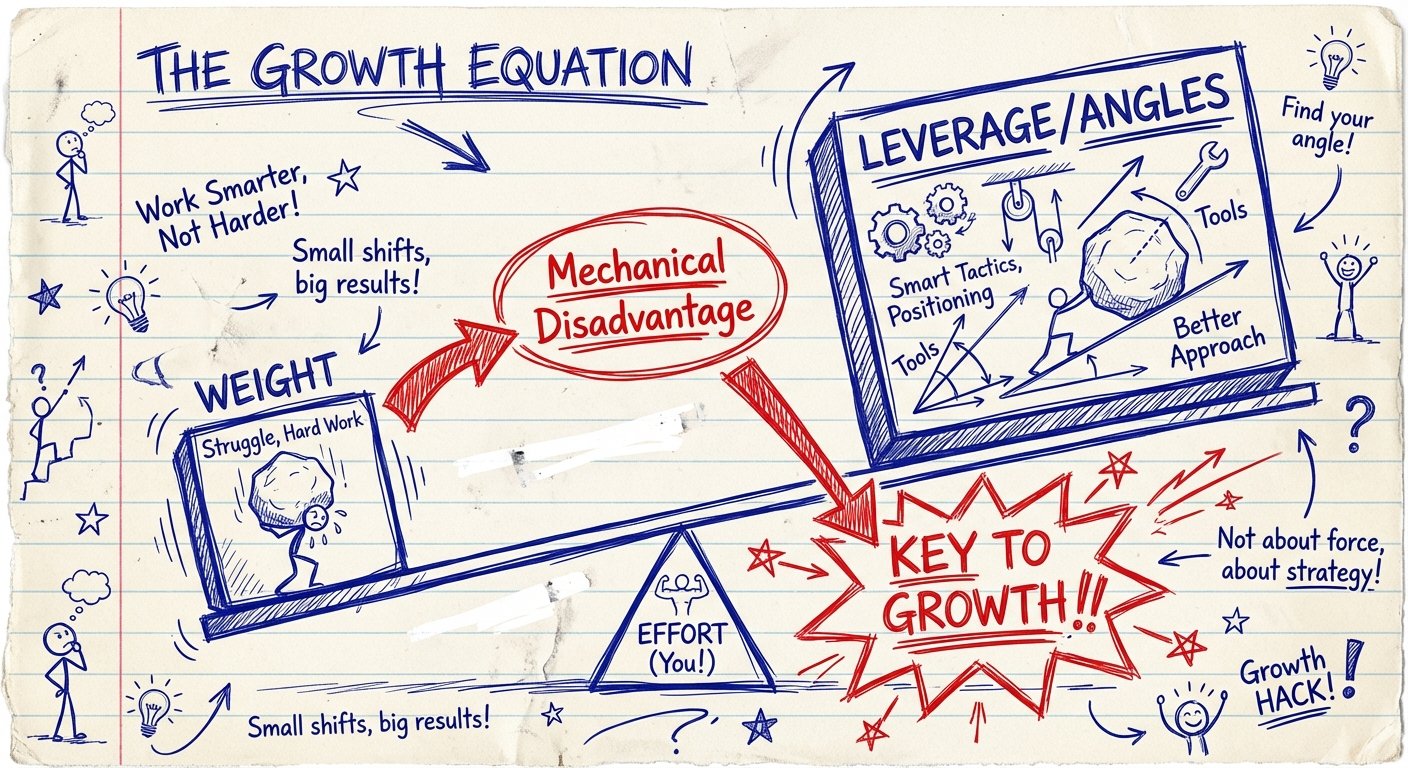 THE GROWTH EQUATION
Work Smarter,
Not Harder!
Small shifts,
big results!
WEIGHT
Struggle, Hard Work
Mechanical
Disadvantage
LEVERAGE/ANGLES
Tools
Smart Tactics,
Positioning
Tools
Better
Approach
Find your
angle!
?
?
EFFORT
(You!)
KEY TO
GROWTH!!
Not about force,
about strategy!
Growth
HACK!
!
Small shifts, big results!
?